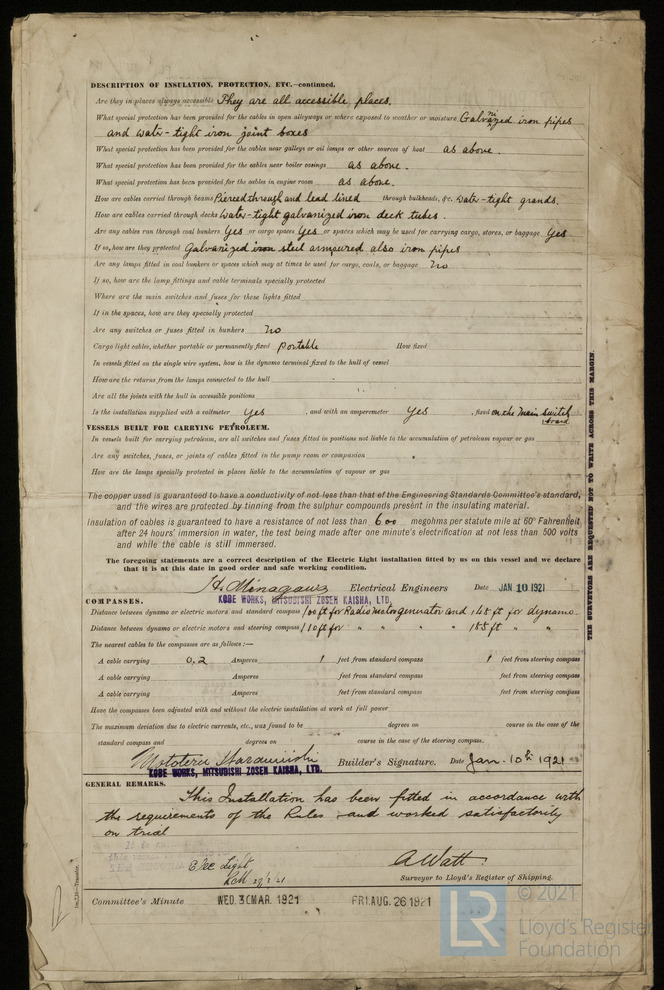 DESCRIPTION OF INSULATION, PROTECTION, ETC.—continued.
Are they in places always accessible They are all accessible places.
What special protection has been provided for the cables in open alleyways or where exposed to weather or moisture Galvanized iron pipes
and water-tight iron joint boxes
What special protection has been provided for the cables near galleys or oil lamps or other sources of heat as above.
What special protection has been provided for the cables near boiler casings as above.
What special protection has been provided for the cables in engine room as above.
How are cables carried through beams Pierced through and lead lined through bulkheads, &c. water-tight grands.
How are cables carried through decks Water-tight galvanized iron deck tubes.
Are any cables run through coal bunkers Yes or cargo spaces Yes or spaces which may be used for carrying cargo, stores, or baggage Yes
If so, how are they protected Galvanized iron steel armoured also iron pipes
Are any lamps fitted in coal bunkers or spaces which may at times be used for cargo, coals, or baggage No
If so, how are the lamp fittings and cable terminals specially protected
Where are the main switches and fuses for these lights fitted
If in the spaces, how are they specially protected
Are any switches or fuses fitted in bunkers No
Cargo light cables, whether portable or permanently fixed Portable How fixed
In vessels fitted on the single wire system, how is the dynamo terminal fixed to the hull of vessel
How are the returns from the lamps connected to the hull
Are all the joints with the hull in accessible positions
Is the installation supplied with a voltmeter Yes, and with an amperemeter Yes, fixed on the main switch
board
VESSELS BUILT FOR CARRYING PETROLEUM.
In vessels built for carrying petroleum, are all switches and fuses fitted in positions not liable to the accumulation of petroleum vapour or gas
Are any switches, fuses, or joints of cables fitted in the pump room or companion
How are the lamps specially protected in places liable to the accumulation of vapour or gas
The copper used is guaranteed to have a conductivity of not less than that of the Engineering Standards Committee's standard,
and the wires are protected by tinning from the sulphur compounds present in the insulating material.
Insulation of cables is guaranteed to have a resistance of not less than 600 megohms per statute mile at 60° Fahrenheit
after 24 hours' immersion in water, the test being made after one minute's electrification at not less than 500 volts
and while the cable is still immersed.
The foregoing statements are a correct description of the Electric Light installation fitted by us on this vessel and we declare
that it is at this date in good order and safe working condition.
H. Minagawa Electrical Engineers Date JAN 10 1921
KOBE WORKS, MITSUBISHI ZOSEN KAISHA, LTD.
COMPASSES.
Distance between dynamo or electric motors and standard compass 100 ft for Radio motor generator and 165 ft for dynamo
Distance between dynamo or electric motors and steering compass 110 ft for " " " " 155 ft " "
The nearest cables to the compasses are as follows:—
A cable carrying 0.2 Amperes 1 feet from standard compass 1 feet from steering compass
A cable carrying Amperes feet from standard compass feet from steering compass
A cable carrying Amperes feet from standard compass feet from steering compass
Have the compasses been adjusted with and without the electric installation at work at full power
The maximum deviation due to electric currents, etc., was found to be degrees on course in the case of the
standard compass and degrees on course in the case of the steering compass.
Builder's Signature. Date Jan. 10th 1921
KOBE WORKS, MITSUBISHI ZOSEN KAISHA, LTD.
GENERAL REMARKS.
This Installation has been fitted in accordance with
the requirements of the Rules and worked satisfactorily
on trial
Elec Light
A Watt
Surveyor to Lloyd's Register of Shipping.
Committee's Minute WED. 30 MAR. 1921 FRI. AUG. 26 1921
THE SURVEYORS ARE REQUESTED NOT TO WRITE ACROSS THIS MARGIN.
© 2021
LR Lloyd's Register
Foundation